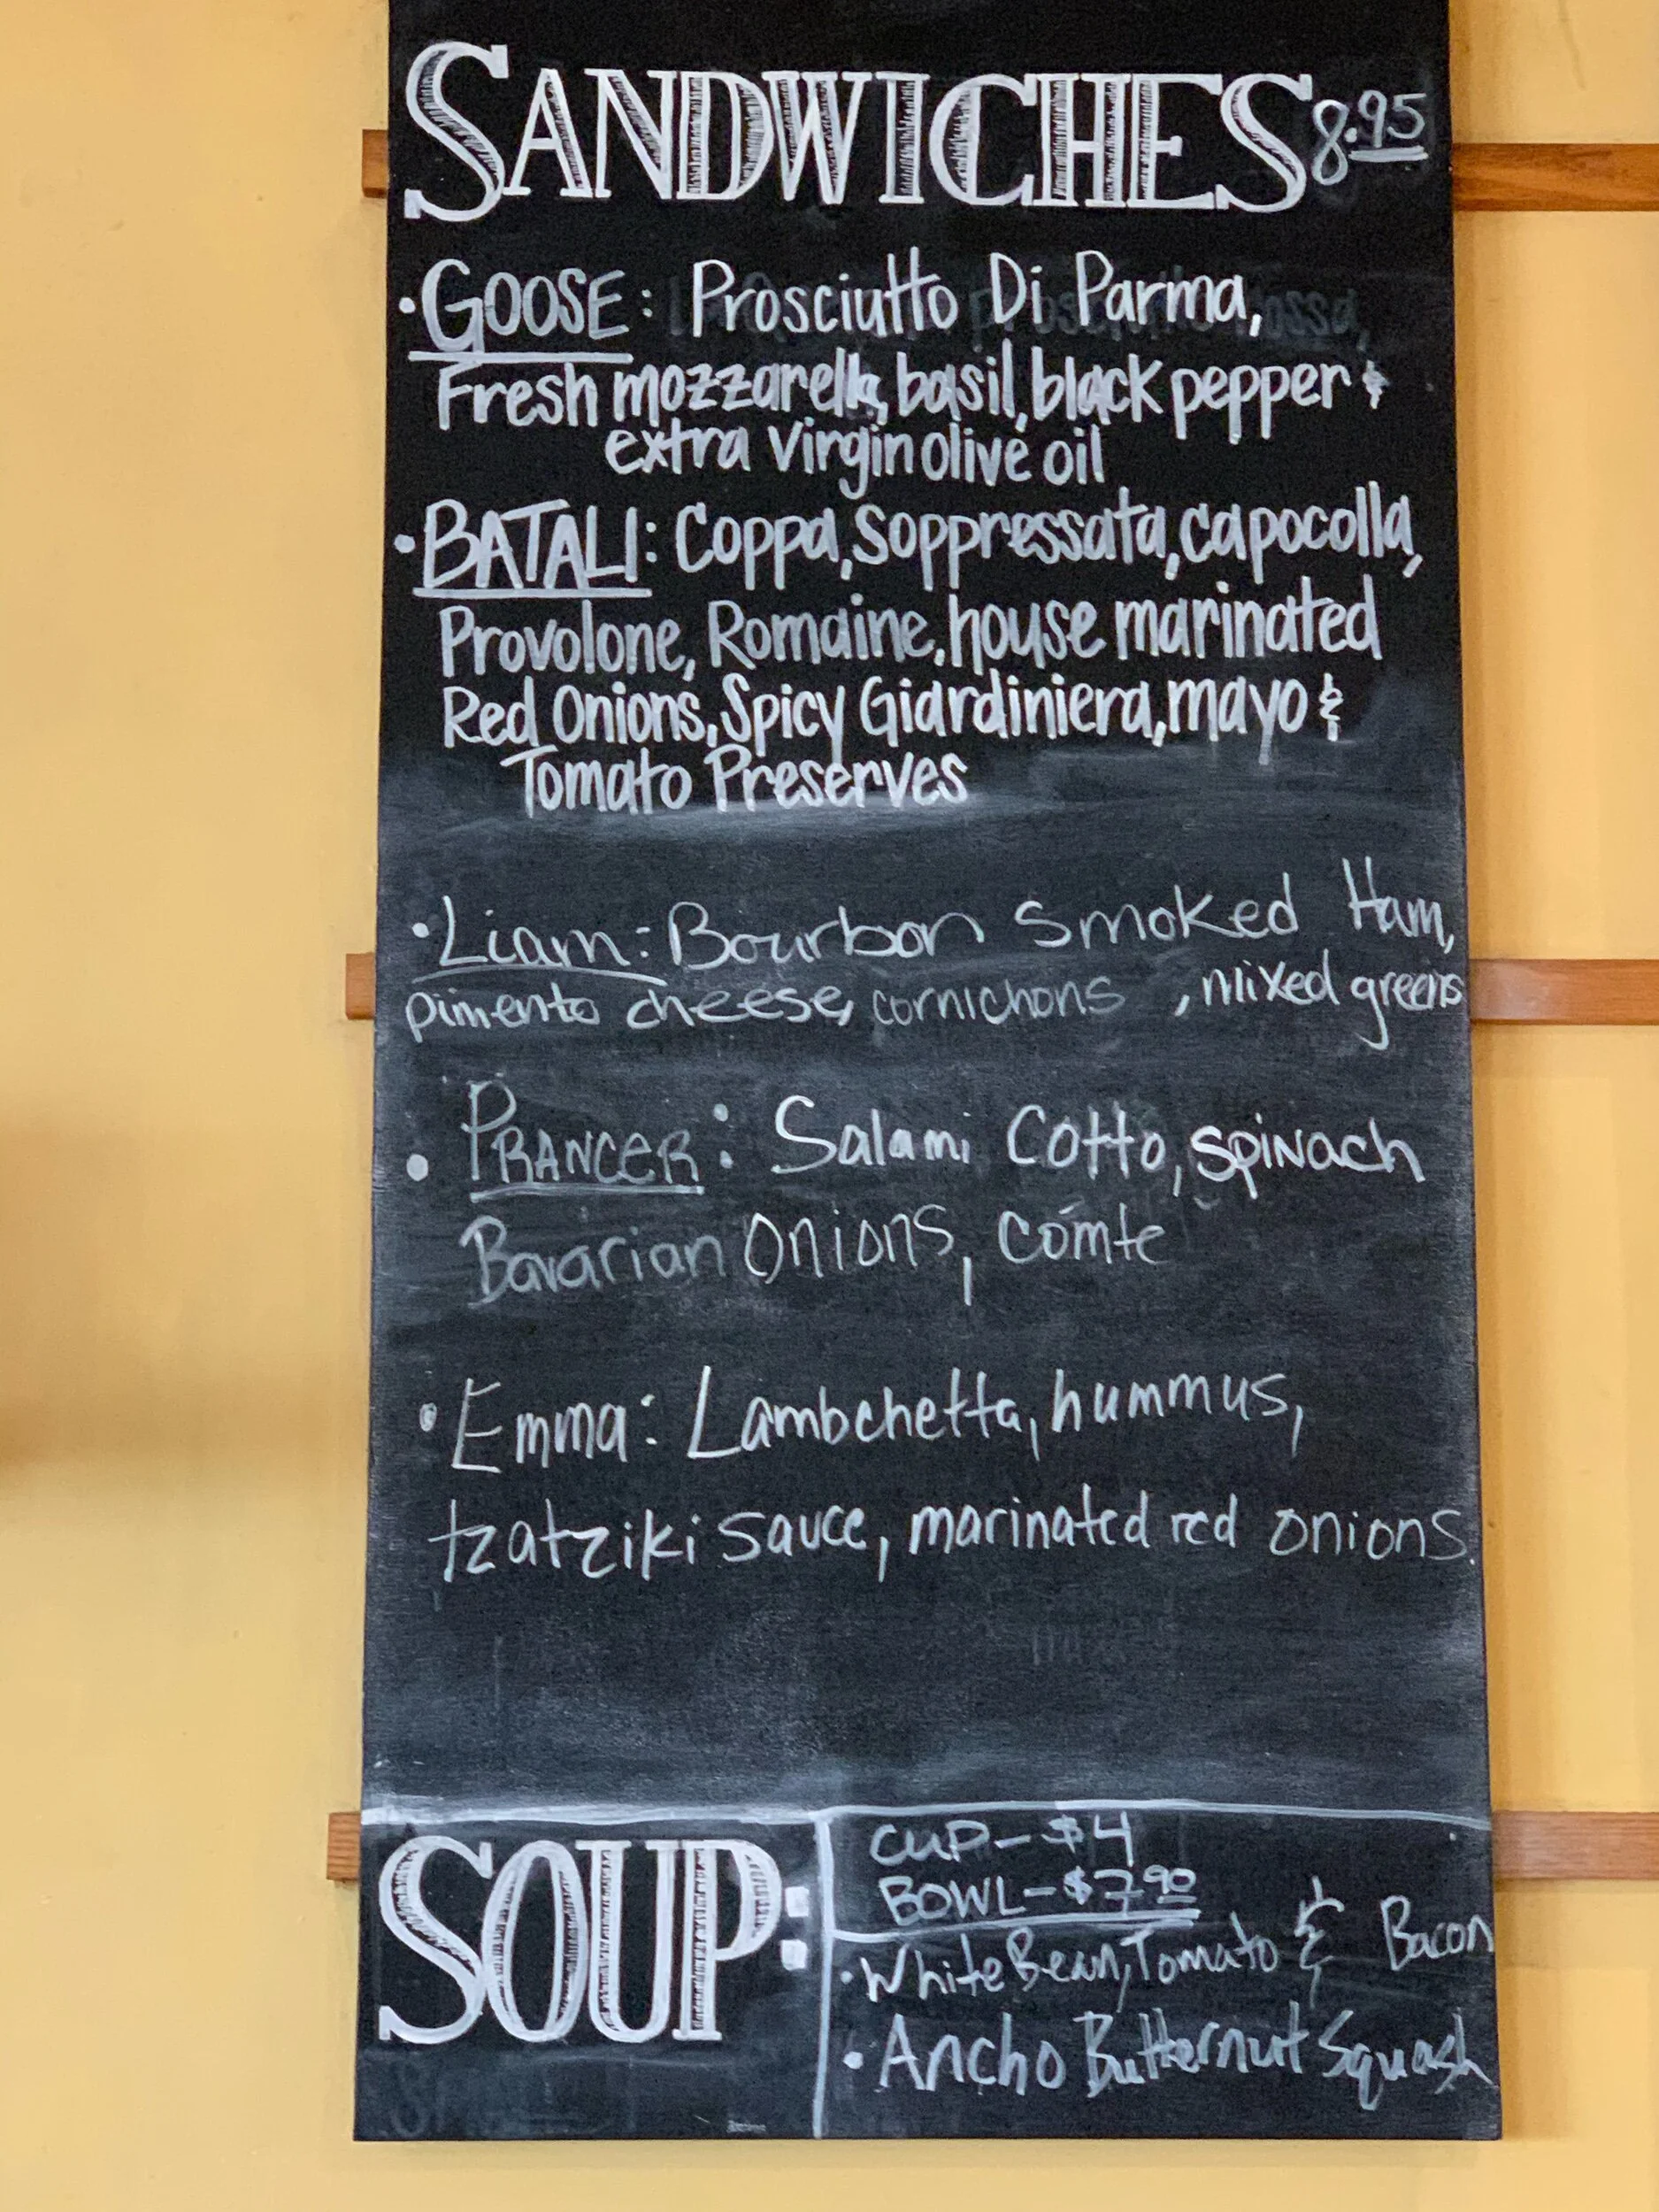 SANDWICHES 8.95
• GOOSE: Prosciutto Di Parma,
Fresh mozzarella, basil, black pepper &
extra virgin olive oil
• BATALI: Coppa, Soppressata, capocolla,
Provolone, Romaine, house marinated
Red Onions, Spicy Giardiniera, mayo &
Tomato Preserves
• Liam: Bourbon Smoked Ham,
pimento cheese, cornichons , mixed greens
• PRANCER: Salami Cotto, spinach
Bavarian Onions, comte
• Emma: Lambchetta, hummus,
tzatziki sauce, marinated red onions.
SOUP:
CUP - $4
BOWL - $7.90
• White Bean, Tomato & Bacon
• Ancho Butternut Squash